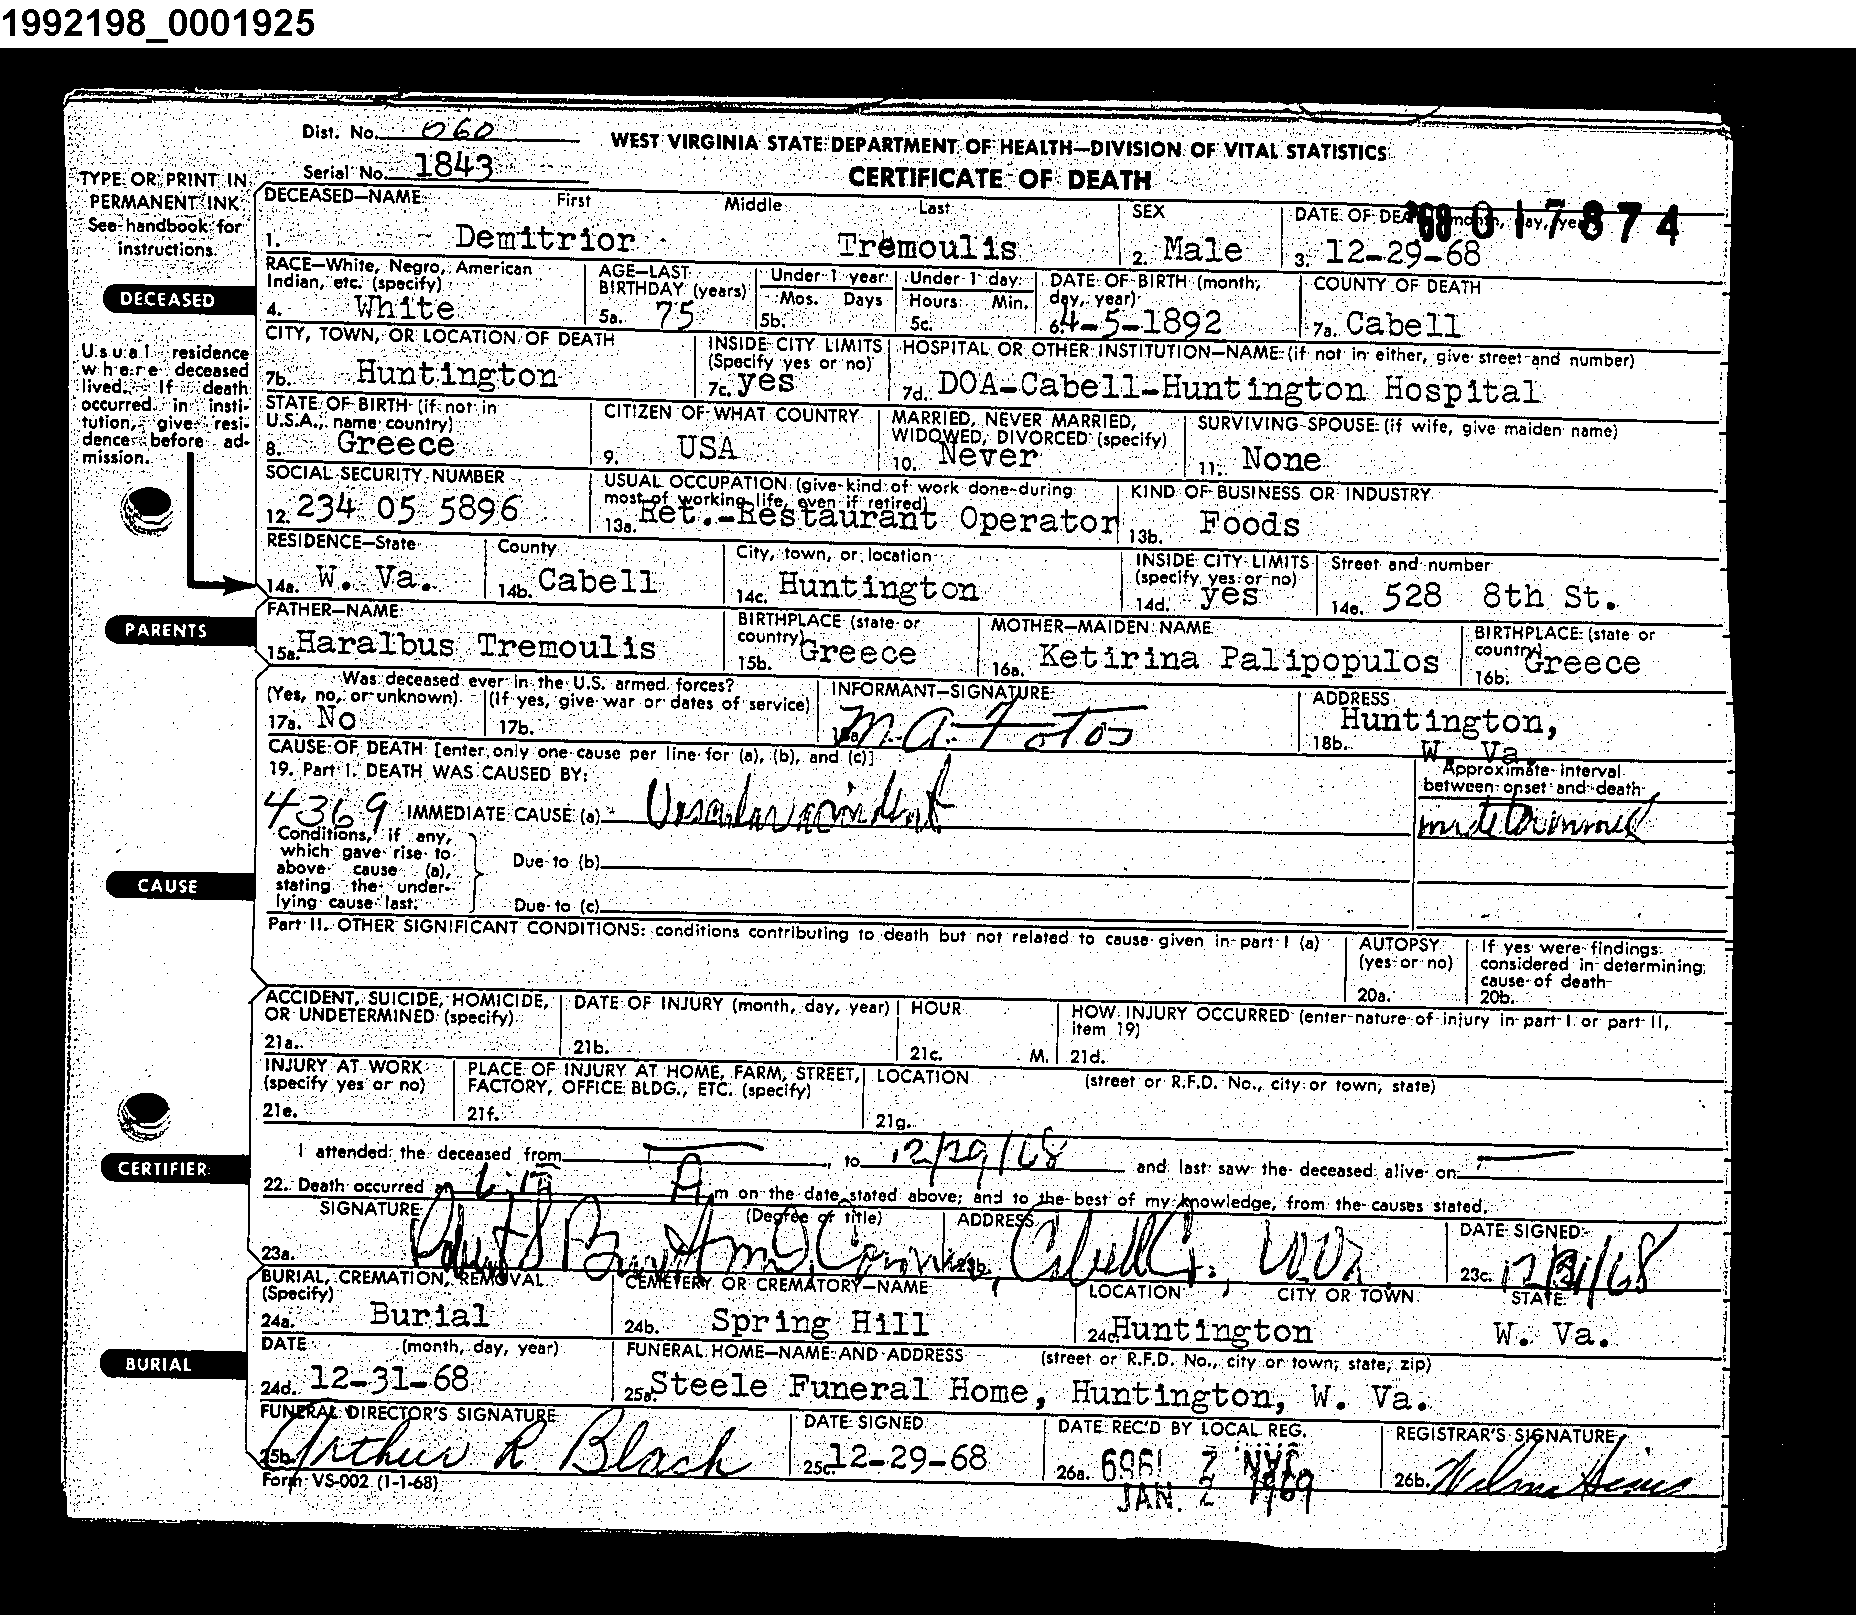 1992198_0001925
Dist. No. 060
WEST VIRGINIA STATE DEPARTMENT OF HEALTH—DIVISION OF VITAL STATISTICS
Serial No. 1843
CERTIFICATE OF DEATH
TYPE OR PRINT IN
PERMANENT INK
See handbook for
instructions.
DECEASED—NAME First Middle Last SEX DATE OF DEATH (month, day, year)
017874
1. Demitrior Tremoulis 2. Male 3. 12-29-68
RACE—White, Negro, American
Indian, etc. (specify)
4. White
AGE—LAST
BIRTHDAY (years)
5a. 75
Under 1 year
Mos. Days
5b.
Under 1 day
Hours Min.
5c.
DATE OF BIRTH (month,
day, year)
6. 4-5-1892
COUNTY OF DEATH
7a. Cabell
DECEASED
CITY, TOWN, OR LOCATION OF DEATH
7b. Huntington
INSIDE CITY LIMITS
(Specify yes or no)
7c. yes
HOSPITAL OR OTHER INSTITUTION—NAME (if not in either, give street and number)
7d. DOA-Cabell-Huntington Hospital
Usual residence
where deceased
lived. If death
occurred in insti-
tution, give resi-
dence before ad-
mission.
STATE OF BIRTH (if not in
U.S.A., name country)
8. Greece
CITIZEN OF WHAT COUNTRY
9. USA
MARRIED, NEVER MARRIED,
WIDOWED, DIVORCED (specify)
10. Never
SURVIVING SPOUSE (if wife, give maiden name)
11. None
SOCIAL SECURITY NUMBER
12. 234 05 5896
USUAL OCCUPATION (give kind of work done during
most of working life, even if retired)
13a. Ret.-Restaurant Operator
KIND OF BUSINESS OR INDUSTRY
13b. Foods
RESIDENCE—State
14a. W. Va.
County
14b. Cabell
City, town, or location
14c. Huntington
INSIDE CITY LIMITS
(specify yes or no)
14d. yes
Street and number
14e. 528 8th St.
PARENTS
FATHER—NAME
15a. Haralbus Tremoulis
BIRTHPLACE (state or
country)
15b. Greece
MOTHER—MAIDEN NAME
16a. Ketirina Palipopulos
BIRTHPLACE (state or
country)
16b. Greece
Was deceased ever in the U.S. armed forces?
(Yes, no, or unknown) (If yes, give war or dates of service)
17a. No 17b.
INFORMANT—SIGNATURE
M. A. Fotos
ADDRESS
Huntington,
18b. W. Va.
CAUSE OF DEATH [enter only one cause per line for (a), (b), and (c)]
19. Part I. DEATH WAS CAUSED BY:
Approximate interval
between onset and death
4369 IMMEDIATE CAUSE (a) Vascular accident undetermined
Conditions, if any,
which gave rise to
above cause (a),
stating the under-
lying cause last.
Due to (b)
Due to (c)
CAUSE
Part II. OTHER SIGNIFICANT CONDITIONS: conditions contributing to death but not related to cause given in part I (a)
AUTOPSY
(yes or no)
20a.
If yes were findings
considered in determining
cause of death
20b.
ACCIDENT, SUICIDE, HOMICIDE,
OR UNDETERMINED (specify)
21a.
DATE OF INJURY (month, day, year)
21b.
HOUR
21c. M.
HOW INJURY OCCURRED (enter nature of injury in part I or part II,
item 19)
21d.
INJURY AT WORK
(specify yes or no)
21e.
PLACE OF INJURY AT HOME, FARM, STREET,
FACTORY, OFFICE BLDG., ETC. (specify)
21f.
LOCATION (street or R.F.D. No., city or town, state)
21g.
CERTIFIER
I attended the deceased from — , to 12/29/68 and last saw the deceased alive on —
22. Death occurred at A m on the date stated above; and to the best of my knowledge, from the causes stated.
SIGNATURE (Degree or title) ADDRESS DATE SIGNED
23a. Robert S 23b. Cabell Co., W.Va. 23c. 12/31/68
BURIAL, CREMATION, REMOVAL
(Specify)
24a. Burial
CEMETERY OR CREMATORY—NAME
24b. Spring Hill
LOCATION CITY OR TOWN STATE
24c. Huntington W. Va.
BURIAL
DATE (month, day, year)
24d. 12-31-68
FUNERAL HOME—NAME AND ADDRESS (street or R.F.D. No., city or town, state, zip)
25a. Steele Funeral Home, Huntington, W. Va.
FUNERAL DIRECTOR'S SIGNATURE
25b. Arthur R Black
DATE SIGNED
25c. 12-29-68
DATE REC'D BY LOCAL REG.
26a. JAN 2 1969
JAN. 2 1969
REGISTRAR'S SIGNATURE
26b. Wilma
Form VS-002 (1-1-68)